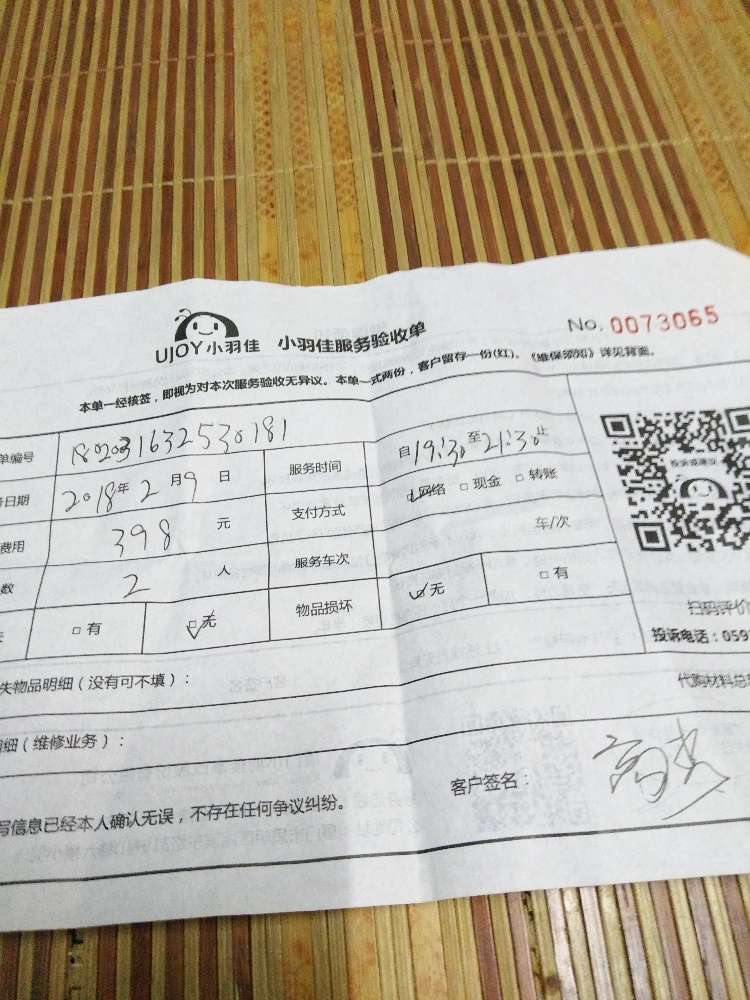 UJOY小羽佳 小羽佳服务验收单 No. 0073065
本单一经核签，即视为对本次服务验收无异议。本单一式两份，客户留存一份(红)。《维保须知》详见背面。
单编号 1802031632530181 服务时间 自19:30至21:30止
务日期 2018年2月9日 支付方式 网络 □ 现金 □ 转账
费用 398 元 服务车次 车/次
数 2 人 物品损坏 无 □ 有
□ 有 无
扫码评价
投诉电话：059
失物品明细（没有可不填）： 代购材料总
细（维修业务）：
客户签名：
写信息已经本人确认无误，不存在任何争议纠纷。